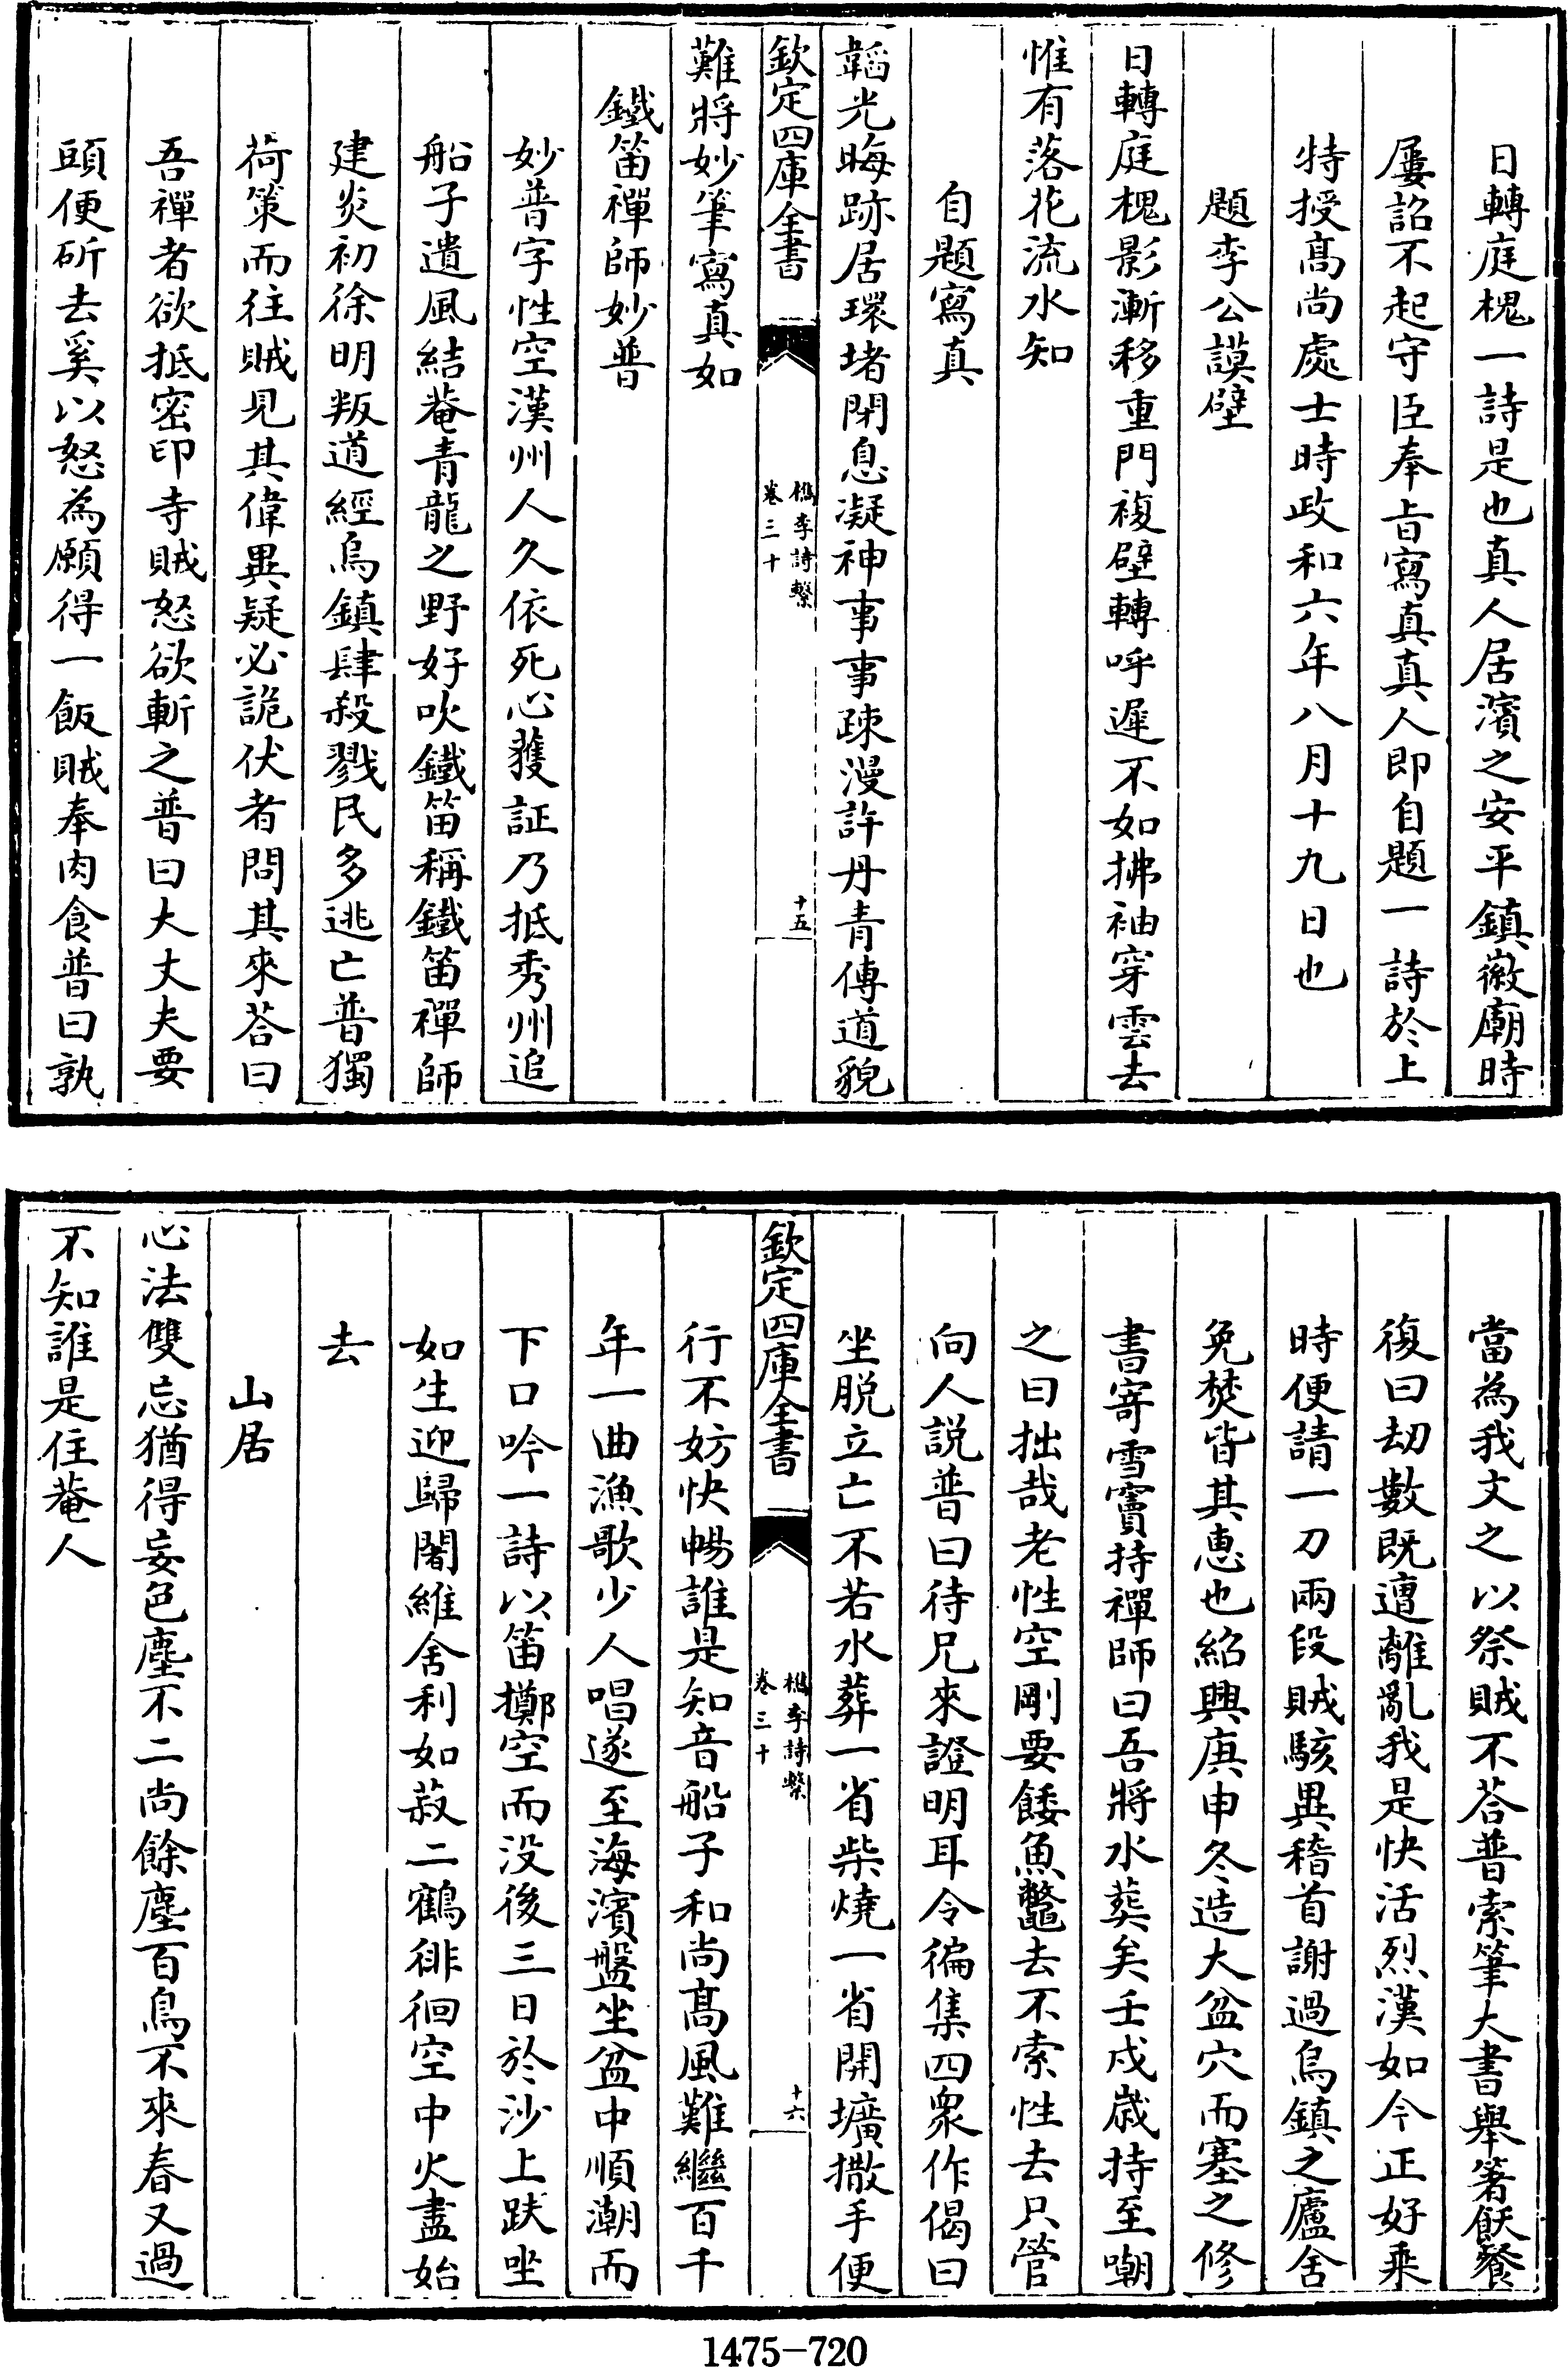 日轉庭槐一詩是也真人居濱之安平鎮徽廟時
屢詔不起守臣奉旨寫真真人即自題一詩於上
特授髙尚處士時政和六年八月十九日也
題李公謨壁
日轉庭槐影漸移重門複壁轉呼遲不如拂袖穿雲去
惟有落花流水知
自題寫真
韜光晦跡居環堵閉息凝神事事疎漫許丹青傳道貌
欽定四庫全書
檇李詩繫
卷三十
十五
難將妙筆寫真如
鐵笛禪師妙普
妙普字性空漢州人久依死心獲証乃抵秀州追
船子遺風結菴青龍之野好吹鐵笛稱鐵笛禪師
建炎初徐明叛道經烏鎮肆殺戮民多逃亡普獨
荷策而往賊見其偉異疑必詭伏者問其來荅曰
吾禪者欲抵密印寺賊怒欲斬之普曰大丈夫要
頭便斫去奚以怒為願得一飯賊奉肉食普曰孰
當為我文之以祭賊不荅普索筆大書舉箸飫餐
復曰刼數既遭離亂我是快活烈漢如今正好乘
時便請一刀兩段賊駭異稽首謝過烏鎮之廬舍
免焚皆其恵也紹興庚申冬造大盆穴而塞之修
書寄雪竇持禪師曰吾將水葬矣壬戌歳持至嘲
之曰拙哉老性空剛要餧魚鼈去不索性去只管
向人説普曰待兄來證明耳令徧集四衆作偈曰
坐脱立亡不若水葬一省柴燒一省開壙撒手便
欽定四庫全書
檇李詩繫
卷三十
十六
行不妨快暢誰是知音船子和尚髙風難繼百千
年一曲漁歌少人唱遂至海濱盤坐盆中順潮而
下口吟一詩以笛擲空而没後三日於沙上趺坐
如生迎歸闍維舍利如菽二鶴徘徊空中火盡始
去
山居
心法雙忘猶得妄色塵不二尚餘塵百鳥不來春又過
不知誰是住菴人
1475-720